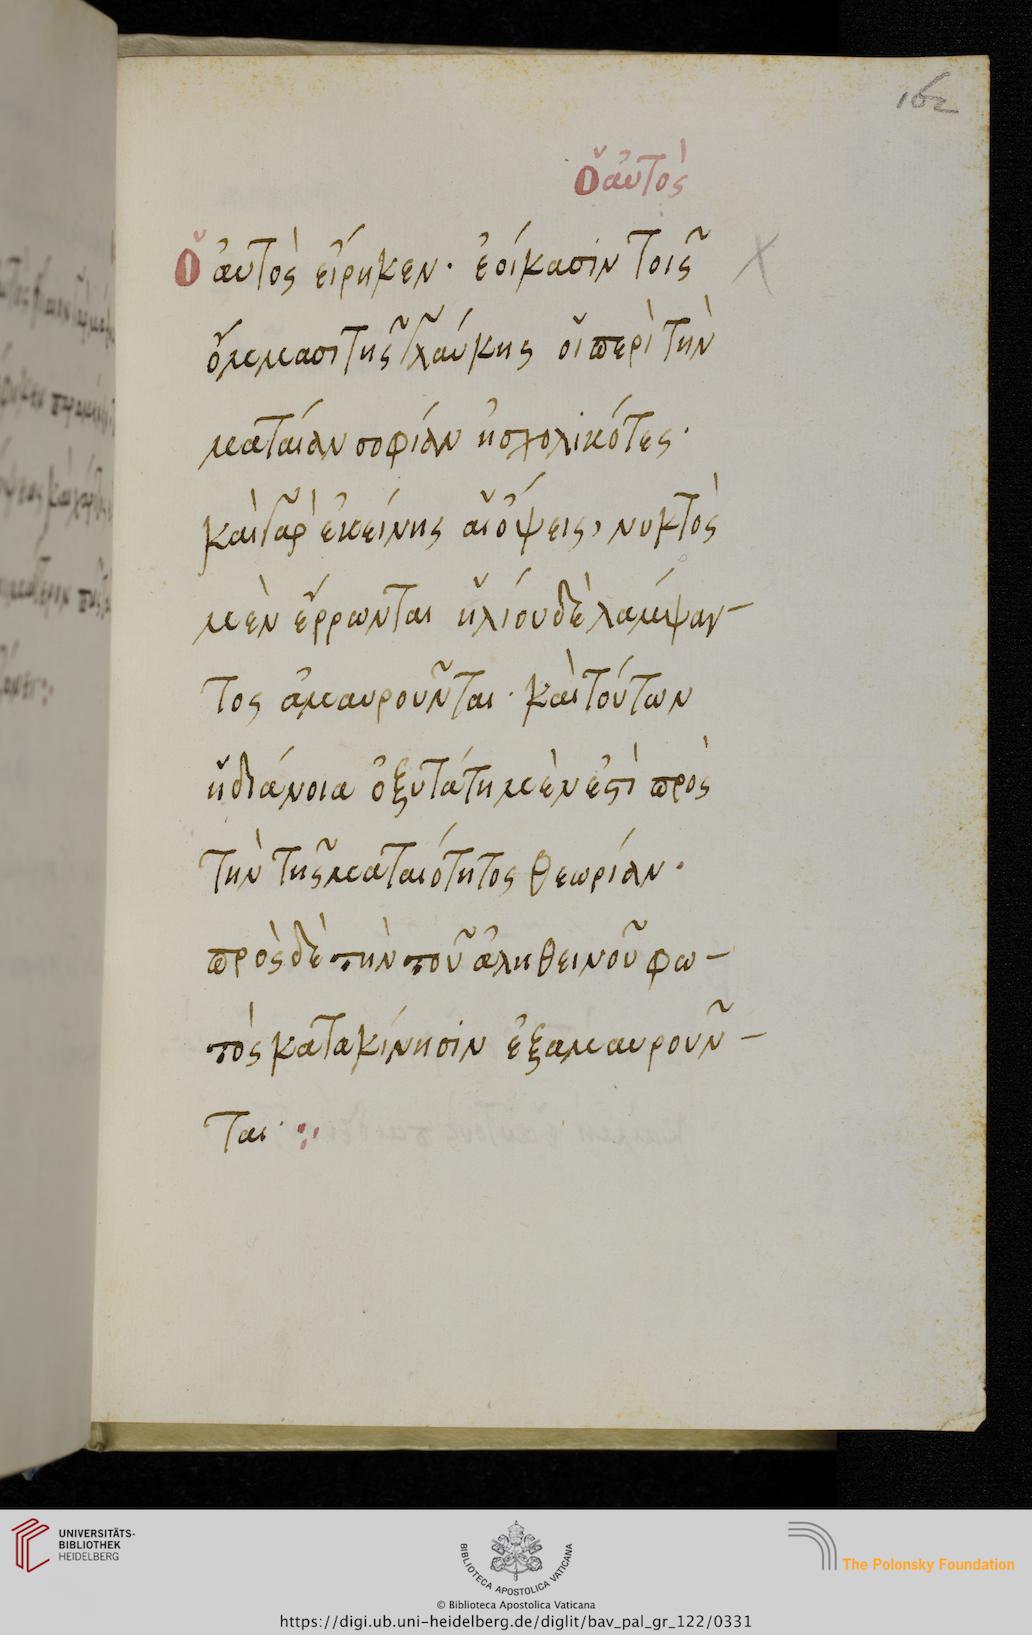 162
Ὁ αὐτὸς
Ὁ αὐτὸς εἴρηκεν· ἐοίκασιν τοῖς
ὄμμασι τῆς γλαύκης οἱ περὶ τὴν
ματαίαν σοφίαν ἠσχολικότες·
καὶ γὰρ ἐκείνης αἱ ὄψεις, νυκτὸς
μὲν ἔρρωνται ἡλίου δὲ λάμψαν-
τος ἀμαυροῦνται· καὶ τούτων
ἡ διάνοια ὀξυτάτη μὲν ἐστὶ πρὸς
τὴν τῆς ματαιότητος θεωρίαν·
πρὸς δὲ τὴν τοῦ ἀληθεινοῦ φω-
τὸς κατακίνησιν ἐξαμαυροῦν-
ται·
UNIVERSITÄTS-
BIBLIOTHEK
HEIDELBERG
BIBLIOTECA APOSTOLICA VATICANA
The Polonsky Foundation
© Biblioteca Apostolica Vaticana
https://digi.ub.uni-heidelberg.de/diglit/bav_pal_gr_122/0331